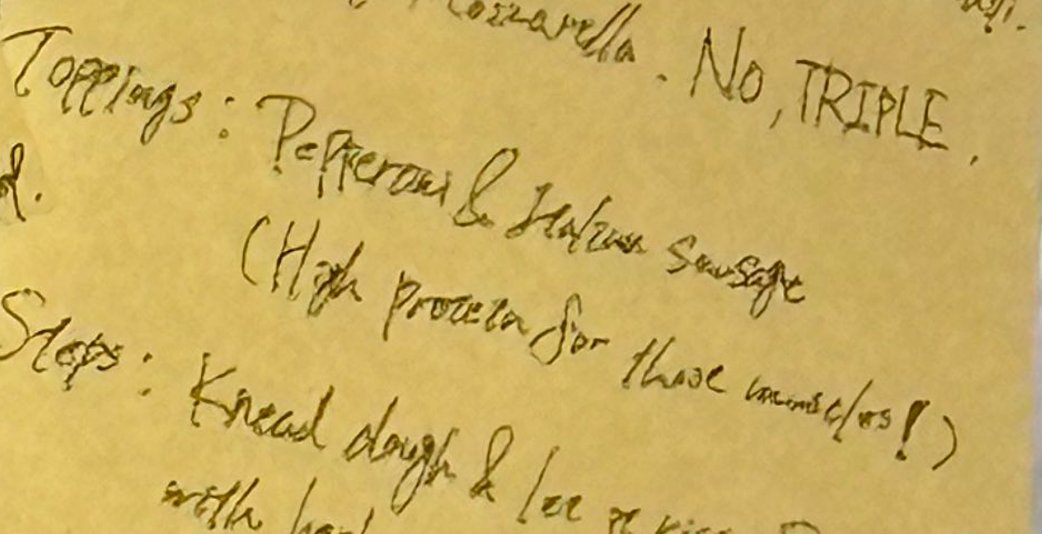 Mozzarella. No, TRIPLE.
Toppings: Pepperoni & Italian sausage
(High protein for those muscles!)
Steps: Knead dough & let it rise.
with